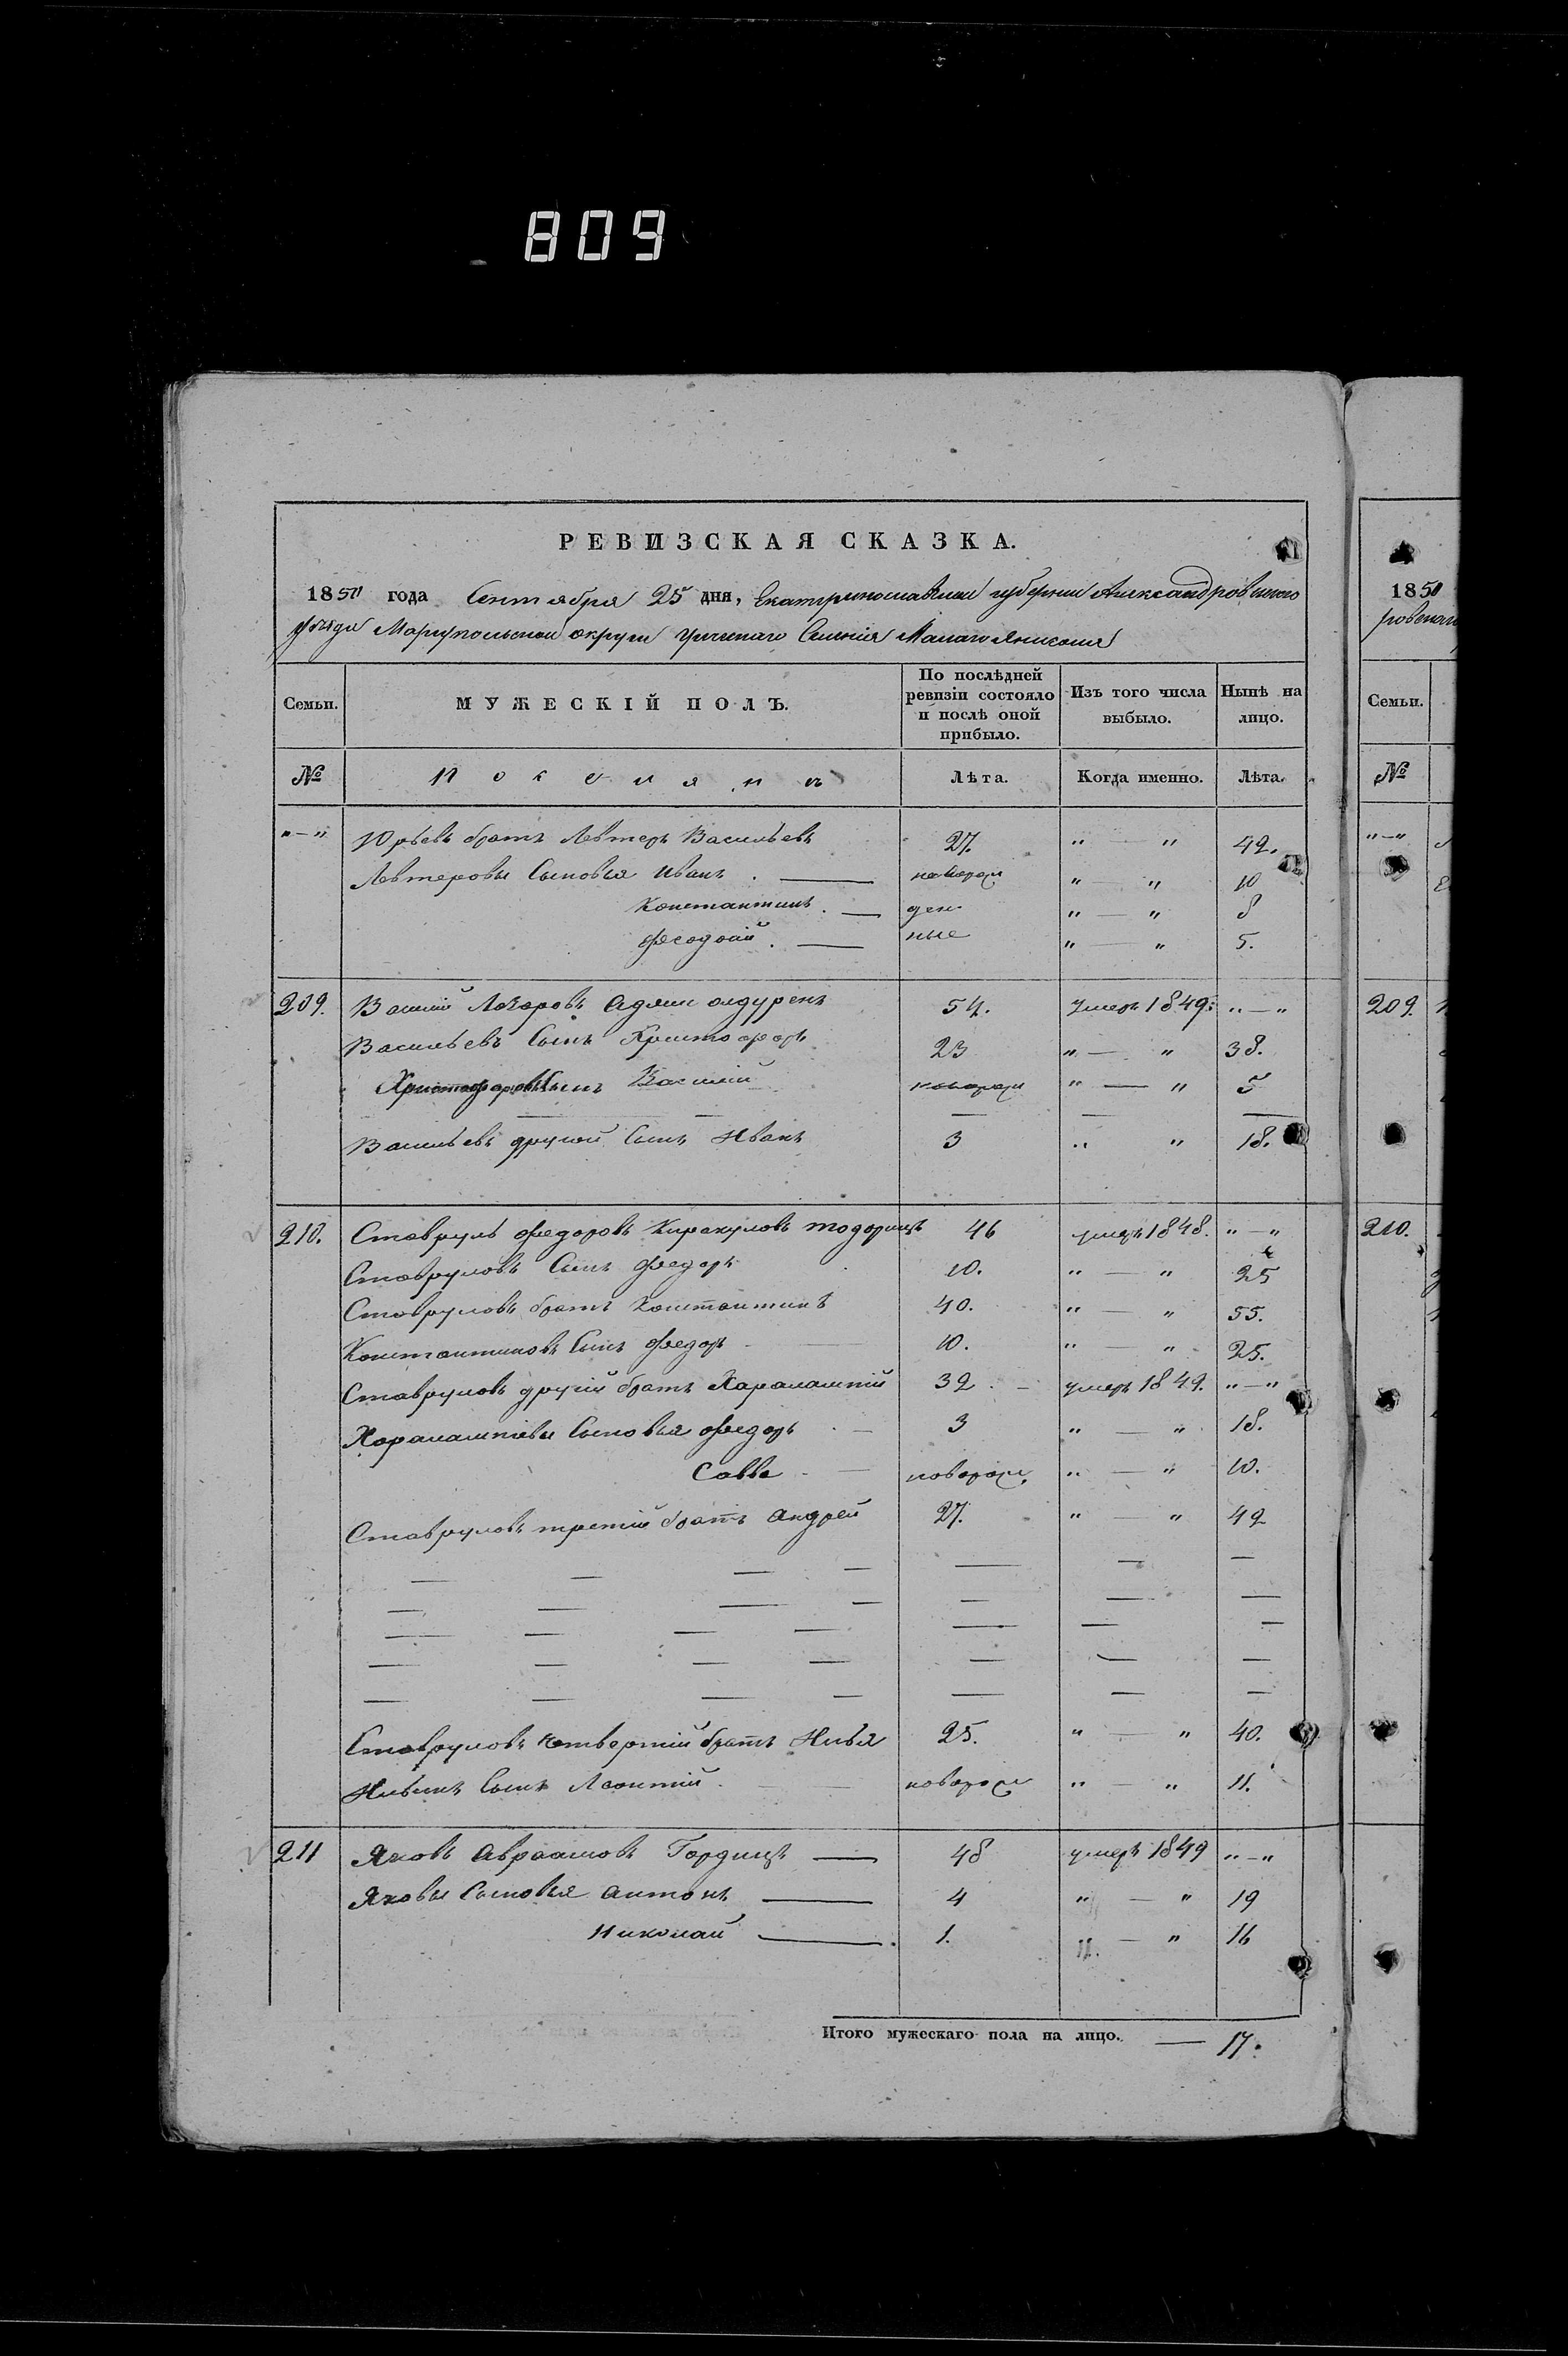 809
РЕВИЗСКАЯ СКАЗКА.
1850 года Сентября 25 дня, Екатеринославской губернии Александровскаго
уѣзда Мариупольской округи Греческаго Селенія Малаго Янисоля
Семьи. МУЖЕСКІЙ ПОЛЪ. По послѣдней ревизіи состояло и послѣ оной прибыло. Изъ того числа выбыло. Нынѣ на лицо.
№ Поселянъ Лѣта. Когда именно. Лѣта.
"—" Юрьевъ братъ Левтеръ Васильевъ 27. " — " 42.
Левтеровы Сыновья Иванъ . — новорож " — " 10
Константинъ . — ден " — " 8
Феодосій . — ные " — " 5.
209. Василій Лазаровъ 54. умеръ 1849. "—"
Васильевъ Сынъ Христофоръ 23 " — " 38.
Христофоровъ Сынъ Василій новорож " — " 5
Васильевъ другой Сынъ Иванъ 3 " " 18.
210. Ставруль Федоровъ Киракуловъ Тодорицъ 46 умеръ 1848. "—"
Ставруловъ Сынъ Федоръ 10. " — " 25
Ставруловъ братъ Константинъ 40. " — " 55.
Константиновъ Сынъ Федоръ 10. " — " 25.
Ставруловъ другій братъ Харалампій 32 умеръ 1849. "—"
Харалампіевы Сыновья Федоръ 3 " — " 18.
Савва новорож " — " 10.
Ставруловъ третій братъ Андрей 27. " — " 42
Ставруловъ четвертій братъ Илья 25. " — " 40.
Ильинъ Сынъ Леонтій новорож " — " 11.
211 Яковъ Авраамовъ Гордицъ — 48 умеръ 1849 "—"
Яковы Сыновья Антонъ — 4 " — " 19
Николай — 1. " — " 16
Итого мужескаго пола на лицо. — 17.
1850
Семьи.
№
"—"
209.
210.